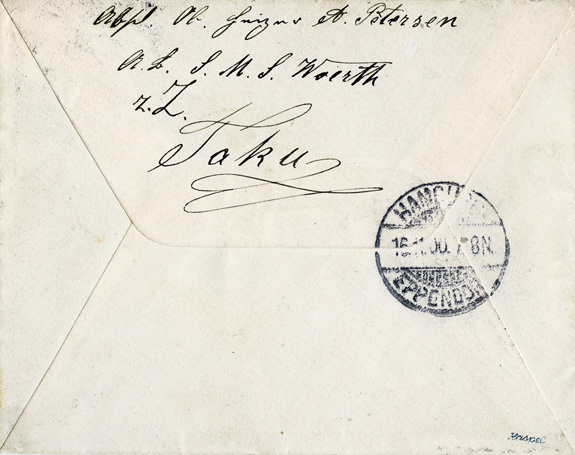 Abs. Ob. Heizer A. Petersen
A. B. S. M. S. Woerth
z. Z.
Taku
HAMBURG
16.11.00. 7-8N.
EPPENDORF